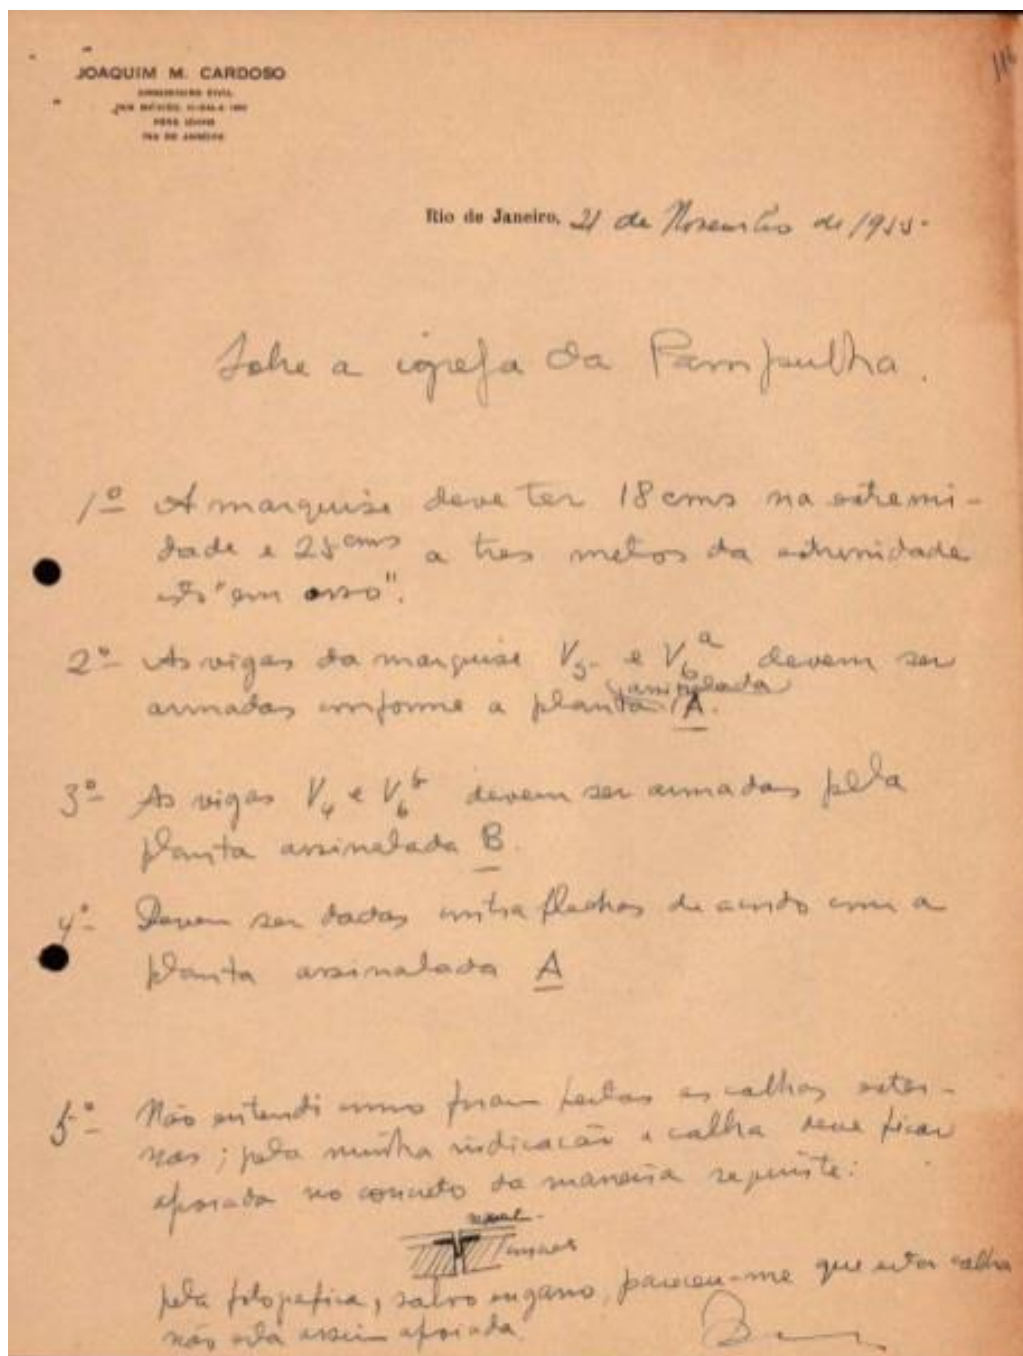 116
JOAQUIM M. CARDOSO
ENGENHEIRO CIVIL
RIO DE JANEIRO
Rio de Janeiro, 21 de Novembro de 1955.
Sobre a igreja da Pampulha.
1º A marquise deve ter 18 cms na extremi-
dade e 25 cms a tres metros da extremidade
isto "em osso".
2º As vigas da marquise V5 e V6a devem ser
assinalada
armadas conforme a planta A.
3º As vigas V4 e V6b devem ser armadas pela
planta assinalada B.
4º Devem ser dadas contra flechas de acordo com a
planta assinalada A
5º Não entendi como foram feitas as calhas exter-
nas; pela minha indicação a calha deve ficar
apoiada no concreto da maneira seguinte:
pela fotografia, salvo engano, pareceu-me que esta calha
não está assim apoiada.